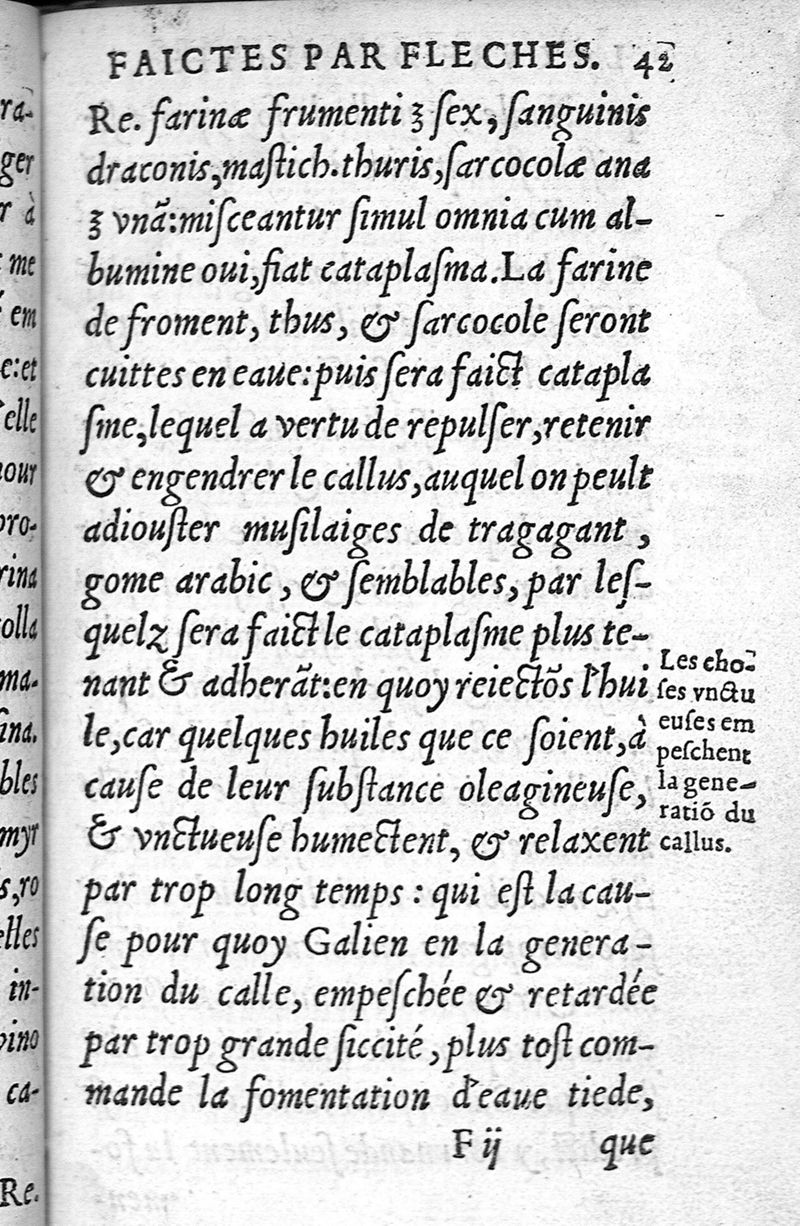 FAICTES PAR FLECHES. 42
Re. farinæ frumenti ℥ ſex, ſanguinis
draconis,maſtich.thuris,ſarcocolæ ana
℥ vnã:miſceantur ſimul omnia cum al-
bumine oui,fiat cataplaſma.La farine
de froment, thus, & ſarcocole ſeront
cuittes en eaue:puis ſera faict catapla
ſme,lequel a vertu de repulſer,retenir
& engendrer le callus,auquel on peult
adiouſter muſilaiges de tragagant ,
gome arabic , & ſemblables, par leſ-
quelz ſera faict le cataplaſme plus te-
nant & adherãt:en quoy reiectõs l'hui
le,car quelques huiles que ce ſoient,à
cauſe de leur ſubſtance oleagineuſe,
& vnctueuſe humectent, & relaxent
par trop long temps : qui eſt la cau-
ſe pour quoy Galien en la genera-
tion du calle, empeſchée & retardée
par trop grande ſiccité , plus toſt com-
mande la fomentation d'eaue tiede,
F ij que
Les cho-
ſes vnctu
euſes em
peſchent
la gene-
ratiõ du
callus.
ra-
ger
r à
me
em
e:et
elle
our
pro-
rina
olla
ma-
ina.
bles
myr
s,ro
elles
in-
vino
ca-
Re.